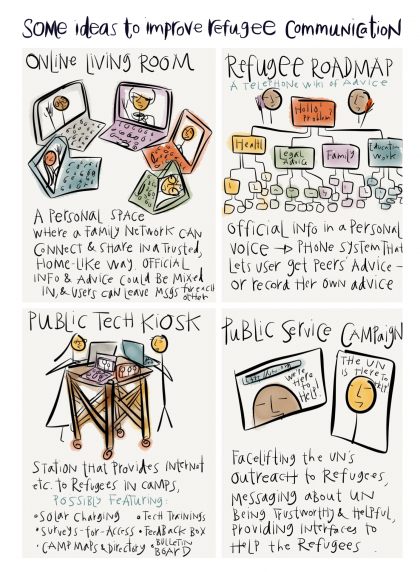 Some ideas to improve refugee Communication
Online Living Room
A personal space
where a family network can
connect & share in a trusted,
home-like way. Official
info & advice could be mixed
in, & users can leave msgs for each
other
Refugee Roadmap
A telephone wiki of advice
Hello!
Problem?
Health
Legal
Advice
Family
Education
Work
Official info in a Personal
voice → Phone system that
lets user get peers' advice -
or record her own advice
Public Tech Kiosk
Station that provides internet
etc. to refugees in camps,
possibly featuring:
• Solar Charging • Tech Trainings
• Surveys-for-Access • Feedback Box
• Camp Maps & Directory • Bulletin
Board
Public Service Campaign
We're
Here
to
Help!
The UN
is Here to
Help!
Facelifting the UN's
outreach to Refugees,
messaging about UN
being trustworthy & helpful,
providing interfaces to
help the Refugees